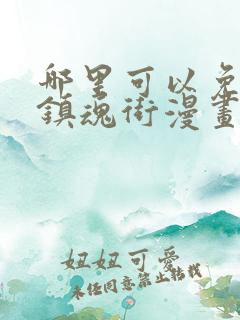 哪里可以免
鎮魂街漫畫
妞妞可愛
未经同意禁止转载